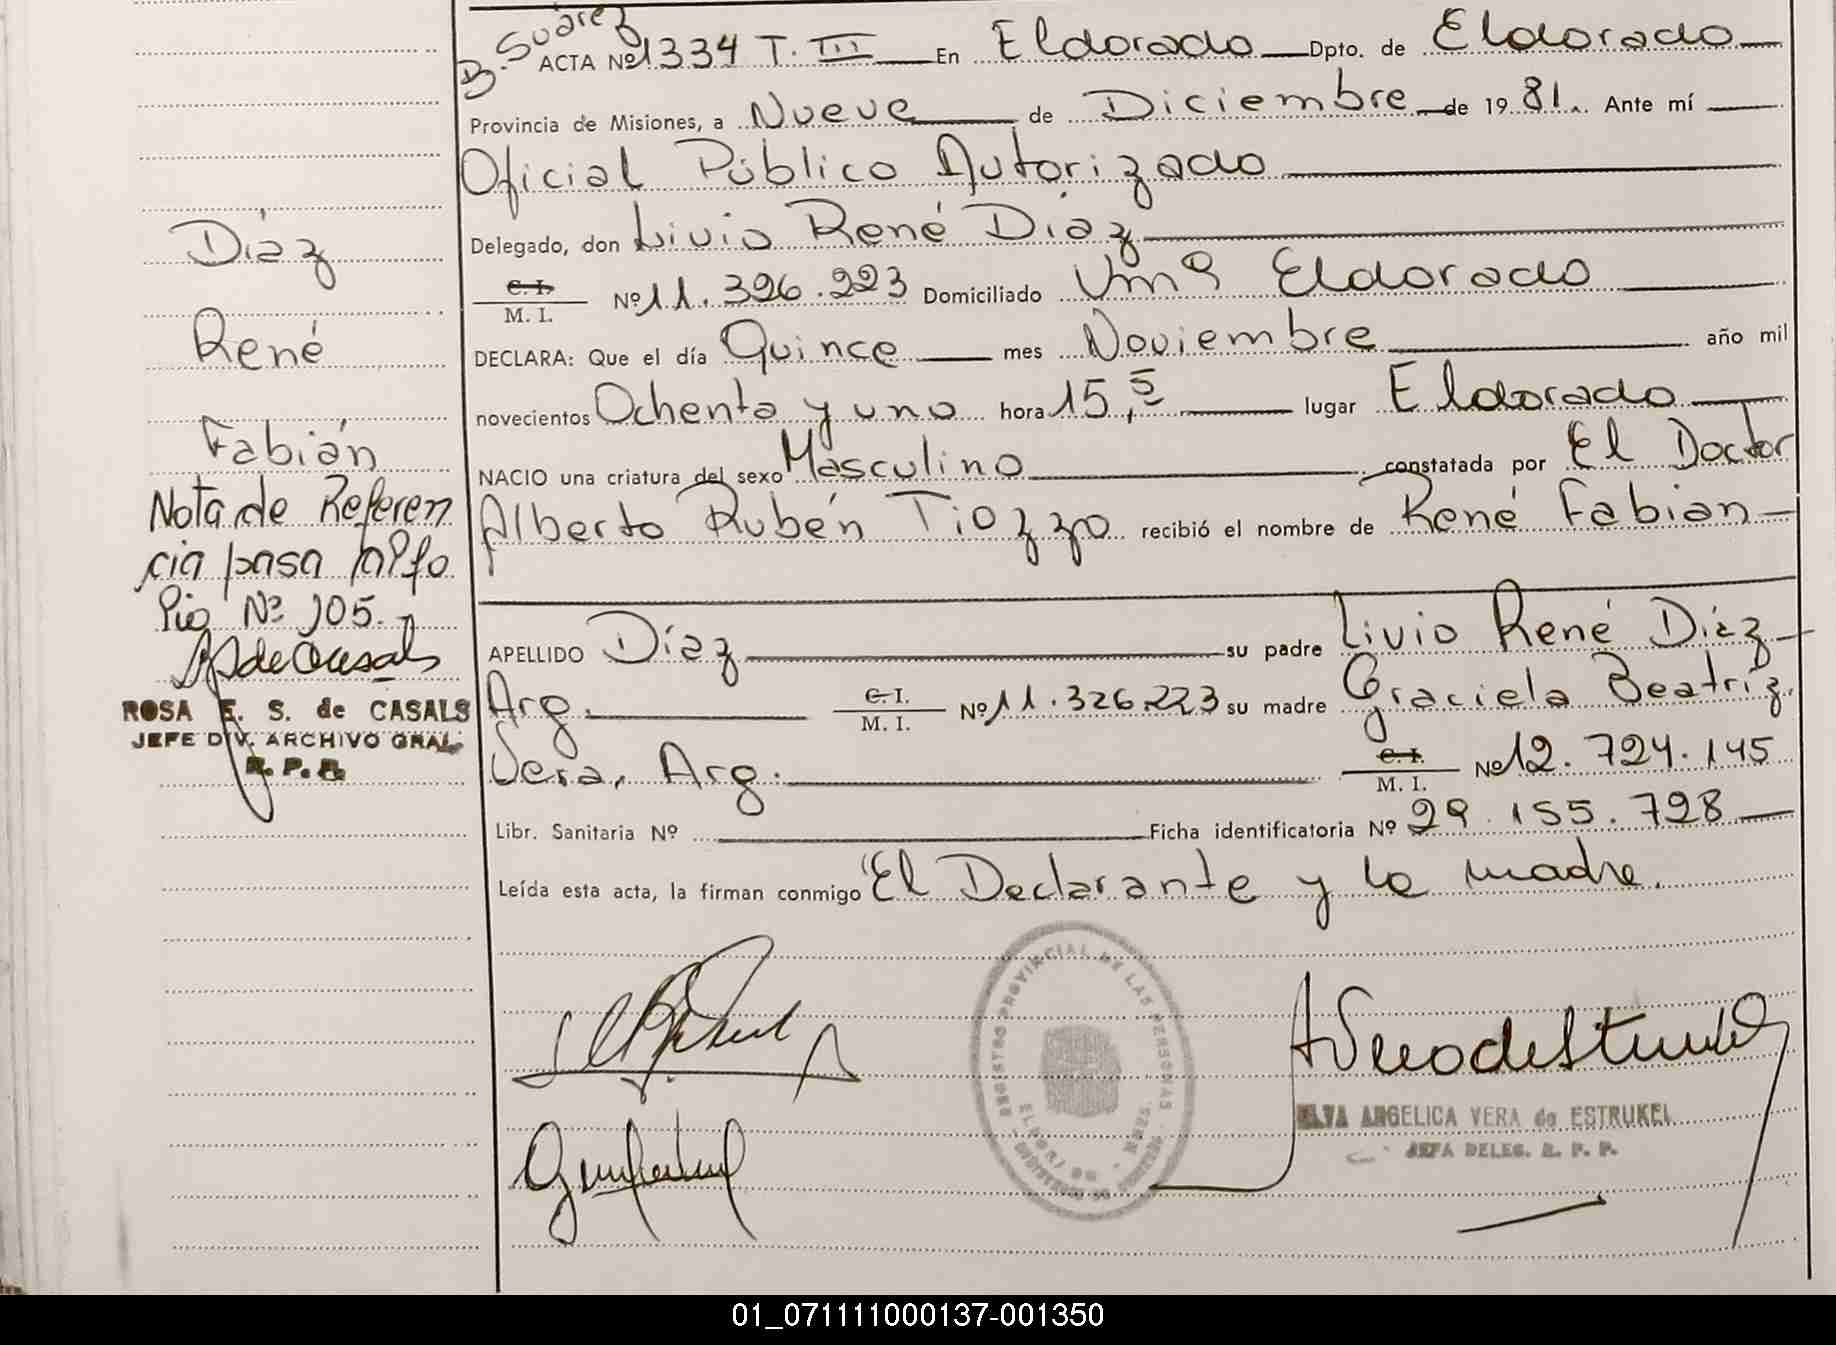 B. Suárez
ACTA Nº 1334 T. III En Eldorado Dpto. de Eldorado
Provincia de Misiones, a Nueve de Diciembre de 19 81. Ante mí
Oficial Público Autorizado
Delegado, don Livio René Díaz
C. I.
M. I.
Nº 11.326.223 Domiciliado Eldorado
DECLARA: Que el día Quince mes Noviembre año mil
novecientos Ochenta y uno hora 15,5 lugar Eldorado
NACIO una criatura del sexo Masculino constatada por El Doctor
Alberto Rubén Tiozzo recibió el nombre de René Fabian
APELLIDO Díaz su padre Livio René Díaz
Arg. C. I. M. I. Nº 11.326.223 su madre Graciela Beatriz
Vera, Arg. C. I. M. I. Nº 12.724.145
Libr. Sanitaria Nº Ficha identificatoria Nº 29.155.728
Leída esta acta, la firman conmigo El Declarante y la madre.
Díaz
René
Fabián
Nota de Referen
cia pasa al fo
lio Nº 105.
ROSA E. S. de CASALS
JEFE DIV. ARCHIVO GRAL.
R. P. P.
REGISTRO PROVINCIAL DE LAS PERSONAS
ELDORADO - MNES.
ELVA ANGELICA VERA de ESTRUKEL
JEFA DELEG. R. P. P.
01_071111000137-001350